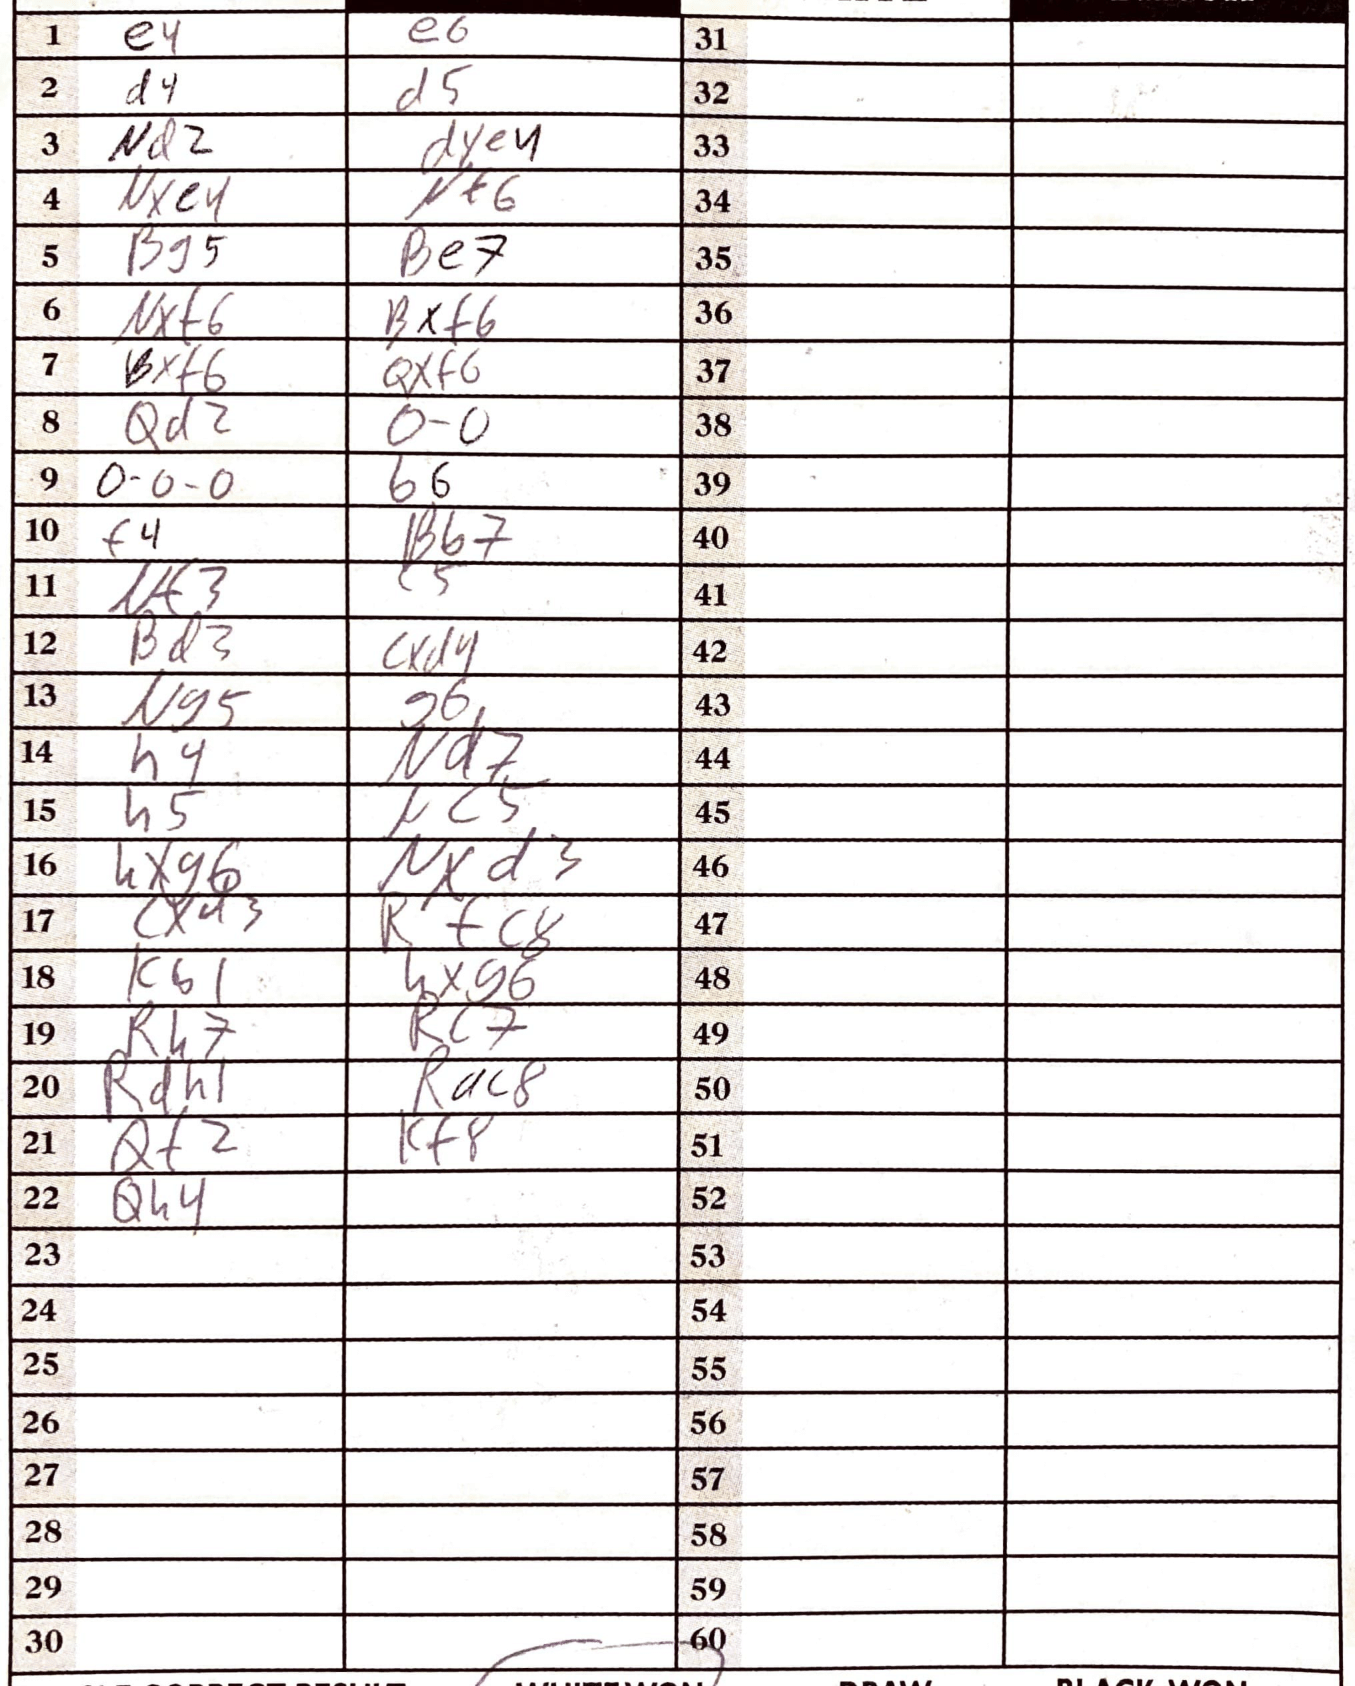 1 e4 e6 31
2 d4 d5 32
3 Nd2 dxe4 33
4 Nxe4 Nf6 34
5 Bg5 Be7 35
6 Nxf6 Bxf6 36
7 Bxf6 Qxf6 37
8 Qd2 0-0 38
9 0-0-0 b6 39
10 f4 Bb7 40
11 Nf3 c5 41
12 Bd3 cxd4 42
13 Ng5 g6 43
14 h4 Nd7 44
15 h5 Nc5 45
16 hxg6 Nxd3 46
17 cxd3 Rfc8 47
18 Kb1 hxg6 48
19 Rh7 Rc7 49
20 Rdh1 Rac8 50
21 Qf2 Kf8 51
22 Qh4 52
23 53
24 54
25 55
26 56
27 57
28 58
29 59
30 60
CORRECT RESULT WHITE WON DRAW BLACK WON